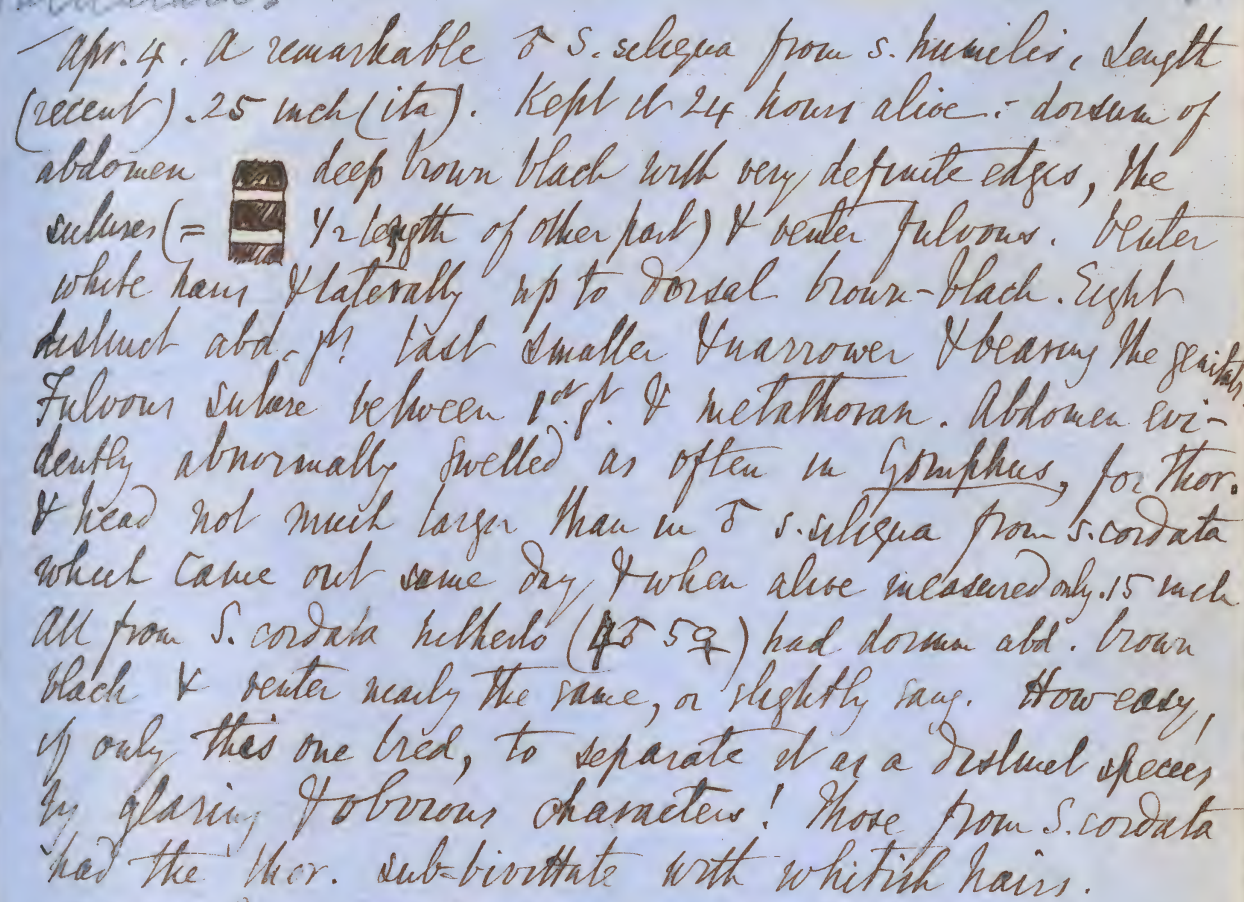 Apr. 4. A remarkable ♂ S. siliqua from S. humilis. Length
(recent) .25 inch (ita). Kept it 24 hours alive:- dorsum of
abdomen deep brown black with very definite edges, the
sutures (= 1/2 length of other part) & venter fulvous. Venter
white hairs & laterally up to dorsal brown-black. Eight
distinct abd. jts. last smaller & narrower & bearing the genitals.
Fulvous suture between 1st jt. & metathorax. Abdomen evi-
dently abnormally swelled as often in Gomphus, for thor.
& head not much larger than in ♂ S. siliqua from S. cordata
which came out same day & when alive measured only .15 inch
All from S. cordata hitherto (4♂ 5♀) had dorsum abd. brown
black & venter nearly the same, or slightly sang. How easy,
if only this one bred, to separate it as a distinct species
by glaring & obvious characters! Those from S. cordata
had the thor. sub-bivittate with whitish hairs.